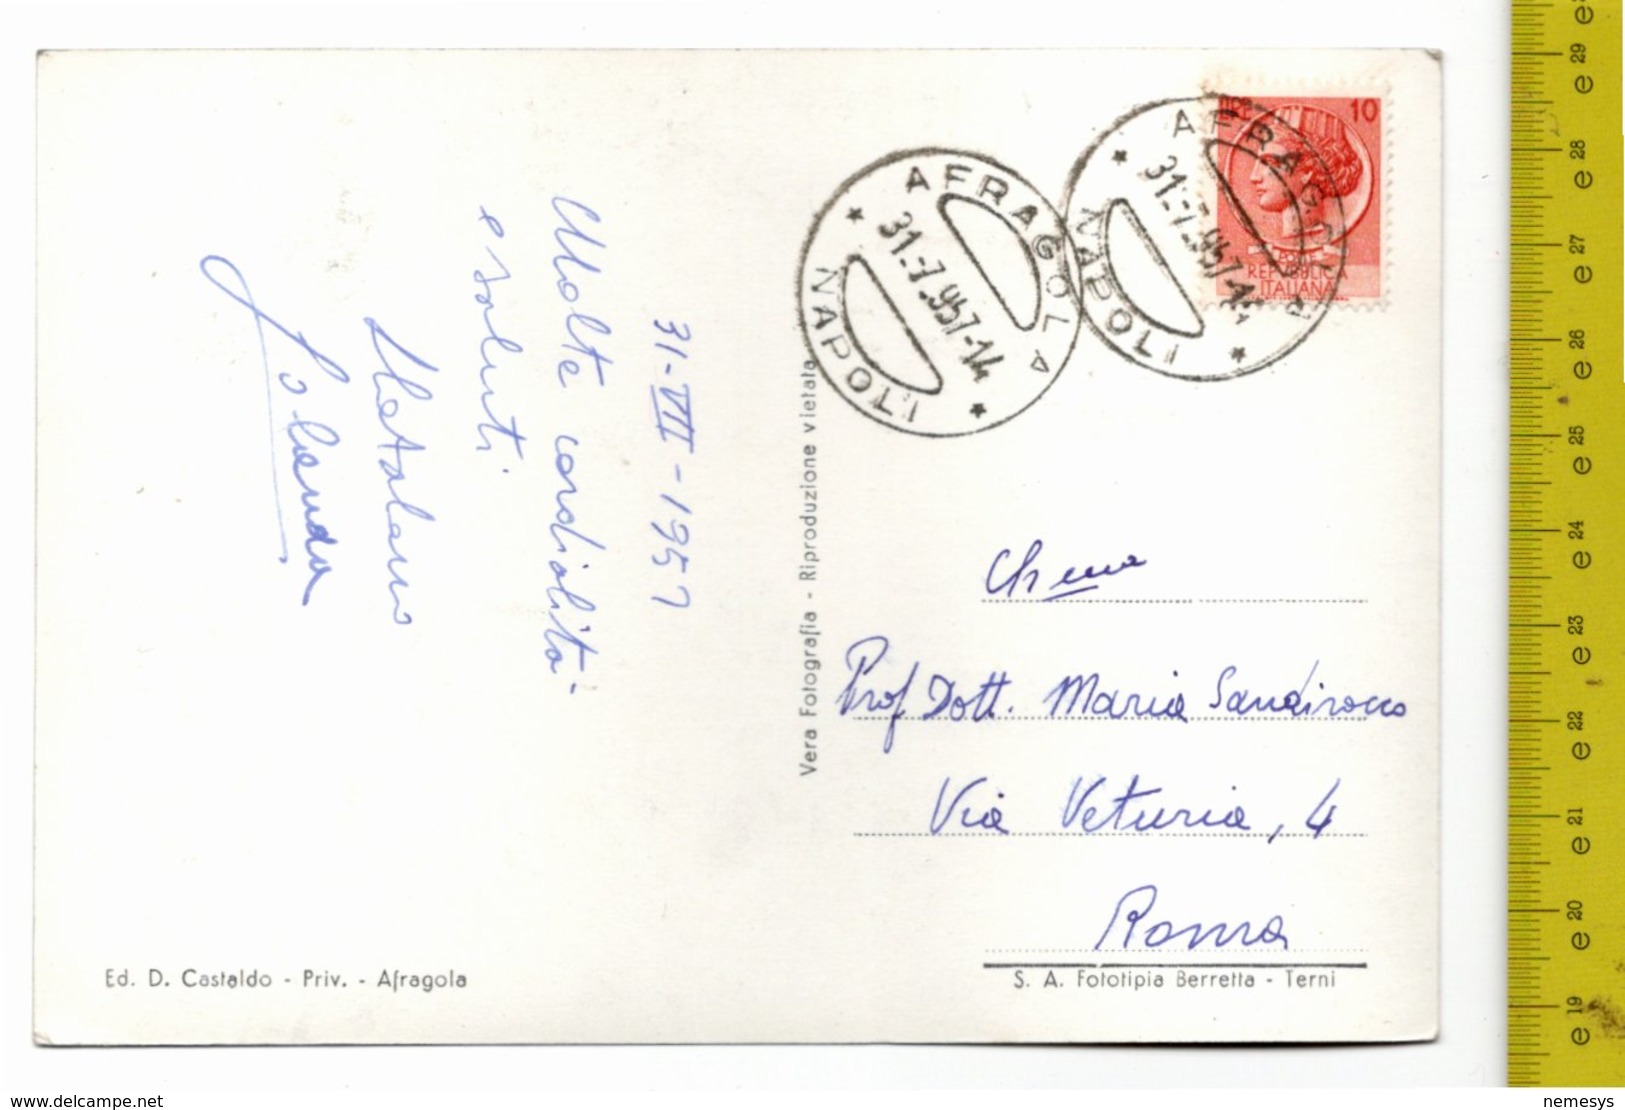 31-VII-1957
Molte cordialità
e saluti
Iolanda
AFRAGOLA
NAPOLI
31.-7.957-14
AFRAGOLA
NAPOLI
31.-7.957-14
LIRE 10
POSTE
REPUBBLICA
ITALIANA
Vera Fotografia - Riproduzione vietata
Ch ma
Prof Dott. Maria Sandirocco
Via Veturia, 4
Roma
Ed. D. Castaldo - Priv. - Afragola
S. A. Fototipia Berretta - Terni
29
28
27
26
25
24
23
22
21
20
19
www.delcampe.net
nemesys